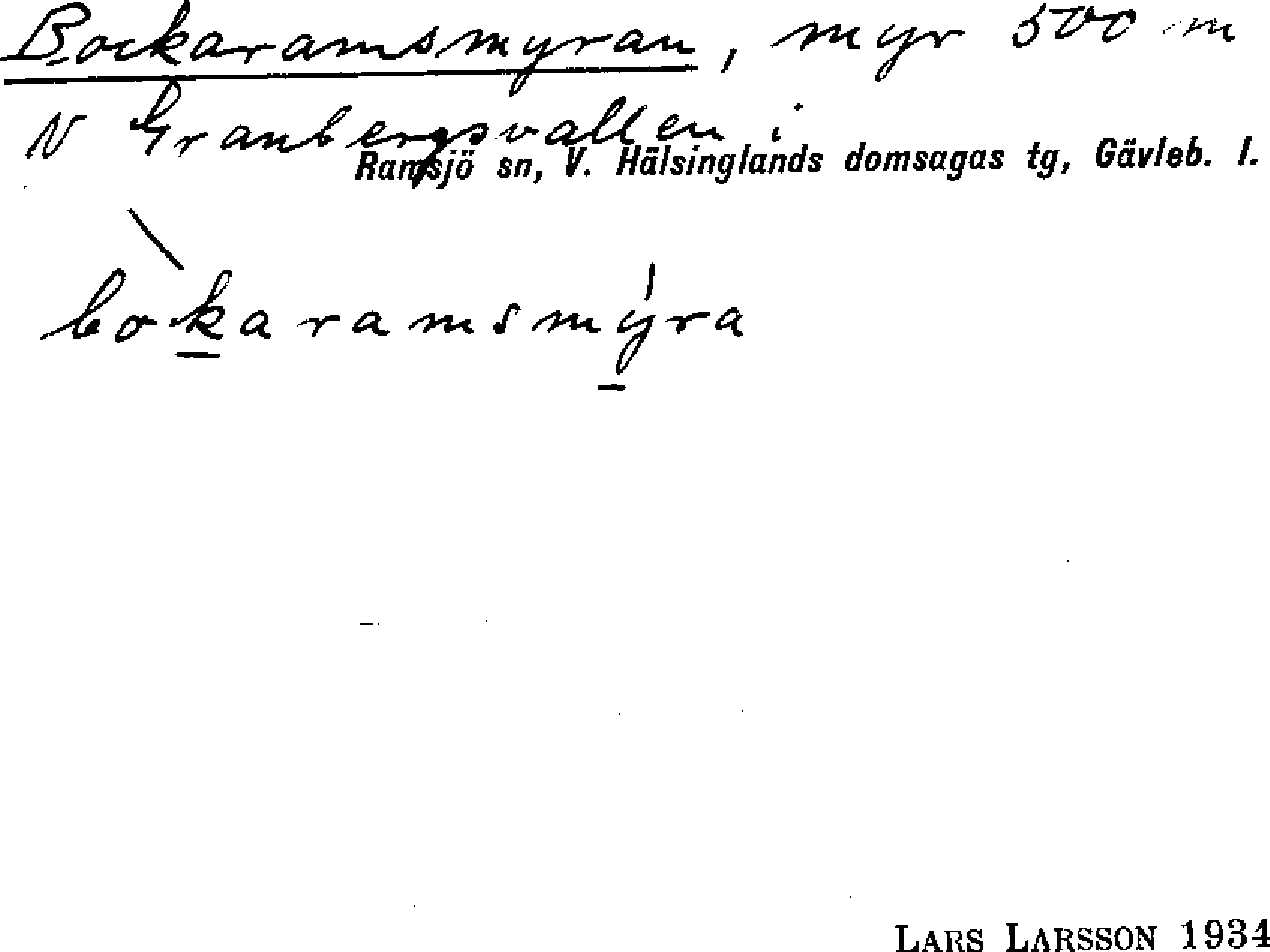 Bockaramsmyran, myr 500 m
N Granbergsvallen i
Ramsjö sn, V. Hälsinglands domsagas tg, Gävleb. l.
bokaramsmyra
LARS LARSSON 1934